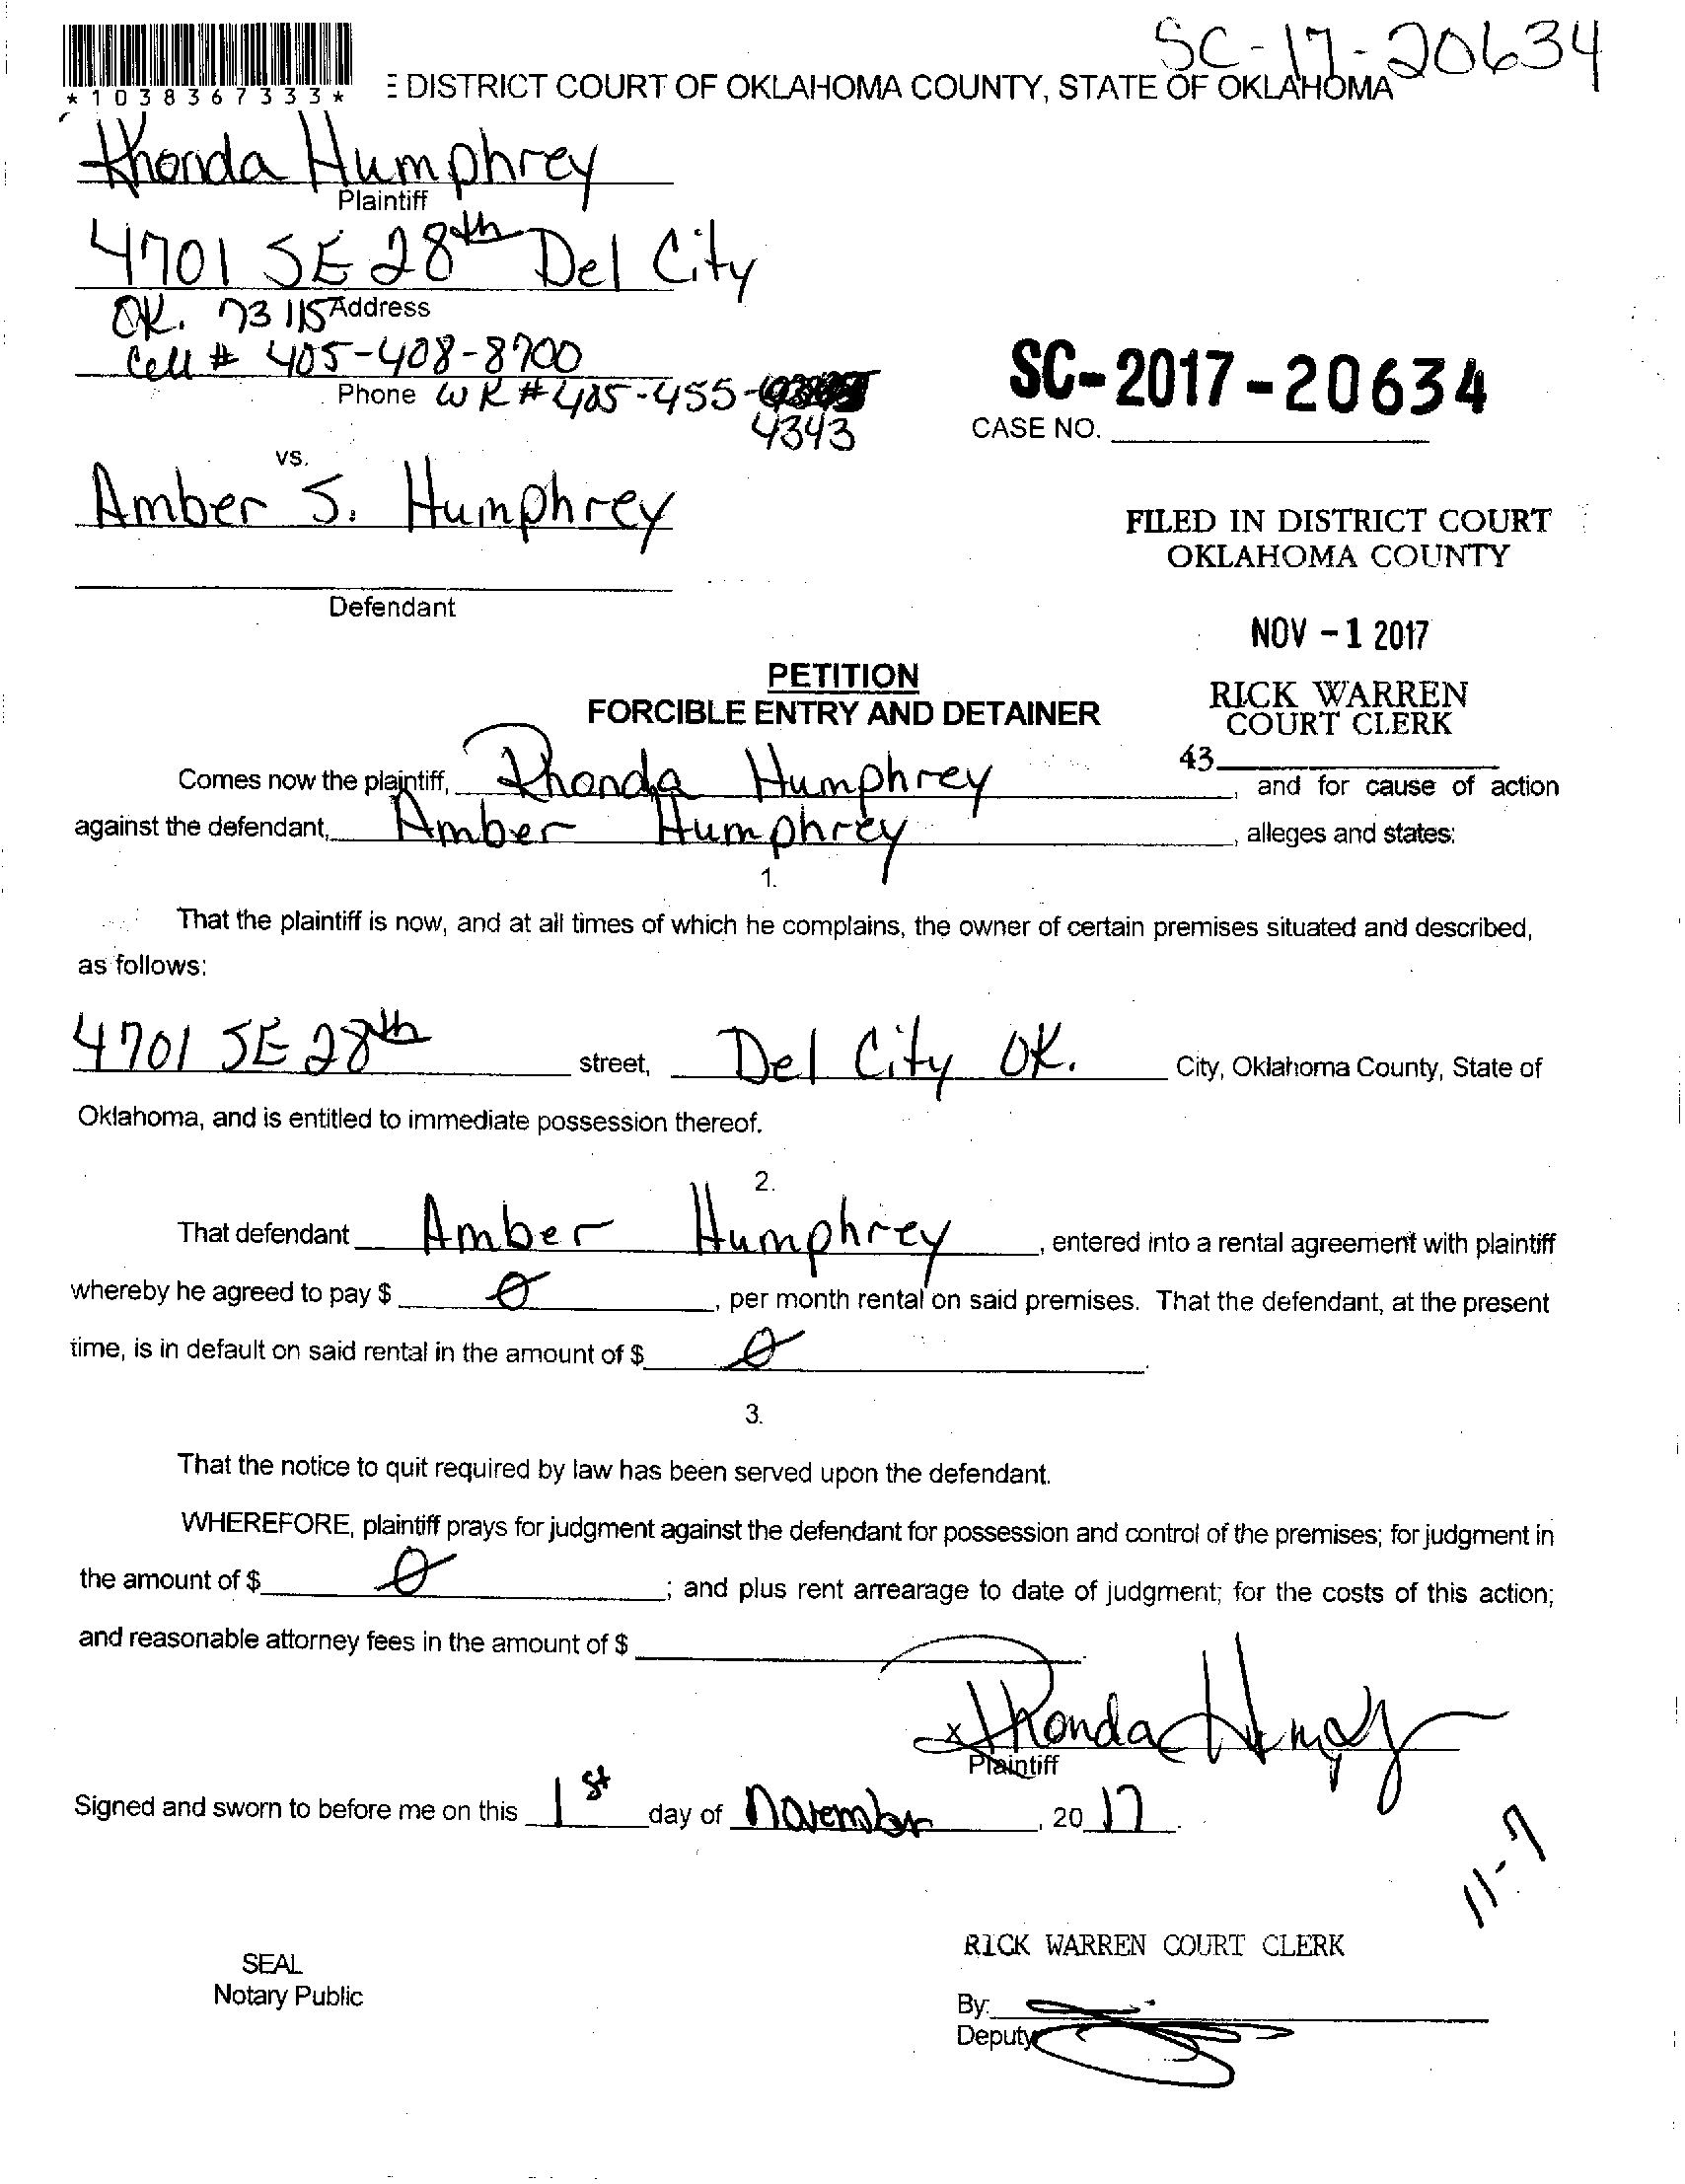 SC-17-20634
*1038367333*
E DISTRICT COURT OF OKLAHOMA COUNTY, STATE OF OKLAHOMA
Rhonda Humphrey
Plaintiff
4701 SE 28th Del City
OK. 73115 Address
Cell # 405-408-8700
Phone WK # 405-455-
4343
SC-2017-20634
CASE NO.
vs.
Amber S. Humphrey
Defendant
FILED IN DISTRICT COURT
OKLAHOMA COUNTY
NOV -1 2017
RICK WARREN
COURT CLERK
43
PETITION
FORCIBLE ENTRY AND DETAINER
Comes now the plaintiff, Rhonda Humphrey, and for cause of action
against the defendant, Amber Humphrey, alleges and states:
1.
That the plaintiff is now, and at all times of which he complains, the owner of certain premises situated and described,
as follows:
4701 SE 28th street, Del City OK. City, Oklahoma County, State of
Oklahoma, and is entitled to immediate possession thereof.
2.
That defendant Amber Humphrey, entered into a rental agreement with plaintiff
whereby he agreed to pay $ 0, per month rental on said premises. That the defendant, at the present
time, is in default on said rental in the amount of $ 0.
3.
That the notice to quit required by law has been served upon the defendant.
WHEREFORE, plaintiff prays for judgment against the defendant for possession and control of the premises; for judgment in
the amount of $ 0; and plus rent arrearage to date of judgment; for the costs of this action;
and reasonable attorney fees in the amount of $
x Rhonda Humphrey
Plaintiff
Signed and sworn to before me on this 1st day of November, 2017.
11-7
SEAL
Notary Public
RICK WARREN COURT CLERK
By:
Deputy